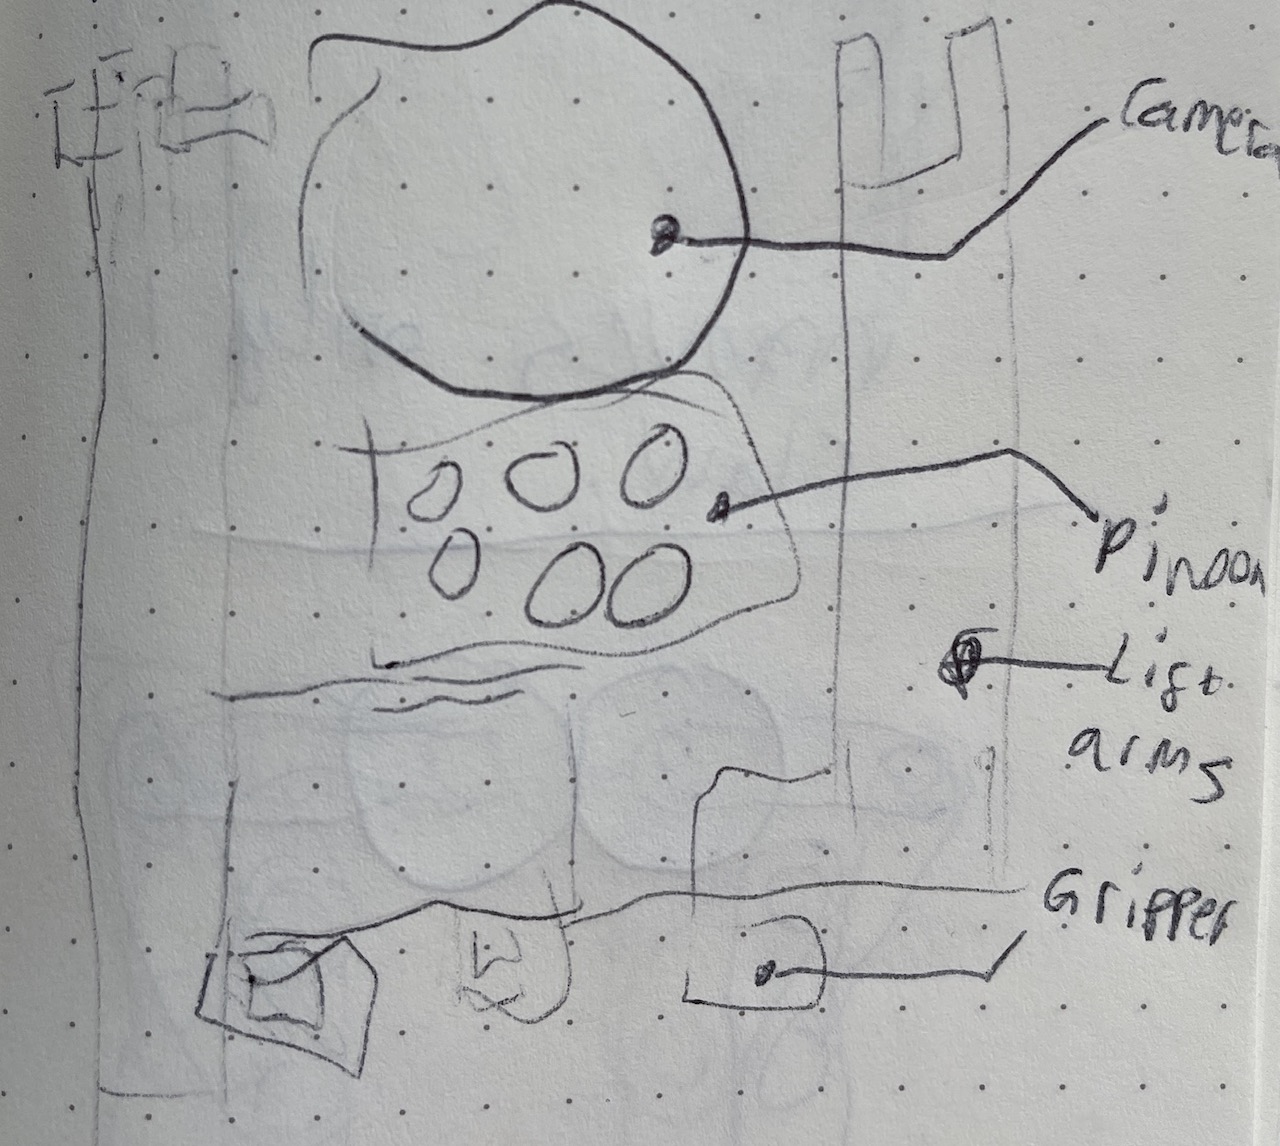 Camera
Pinoon
Lift
arms
Gripper